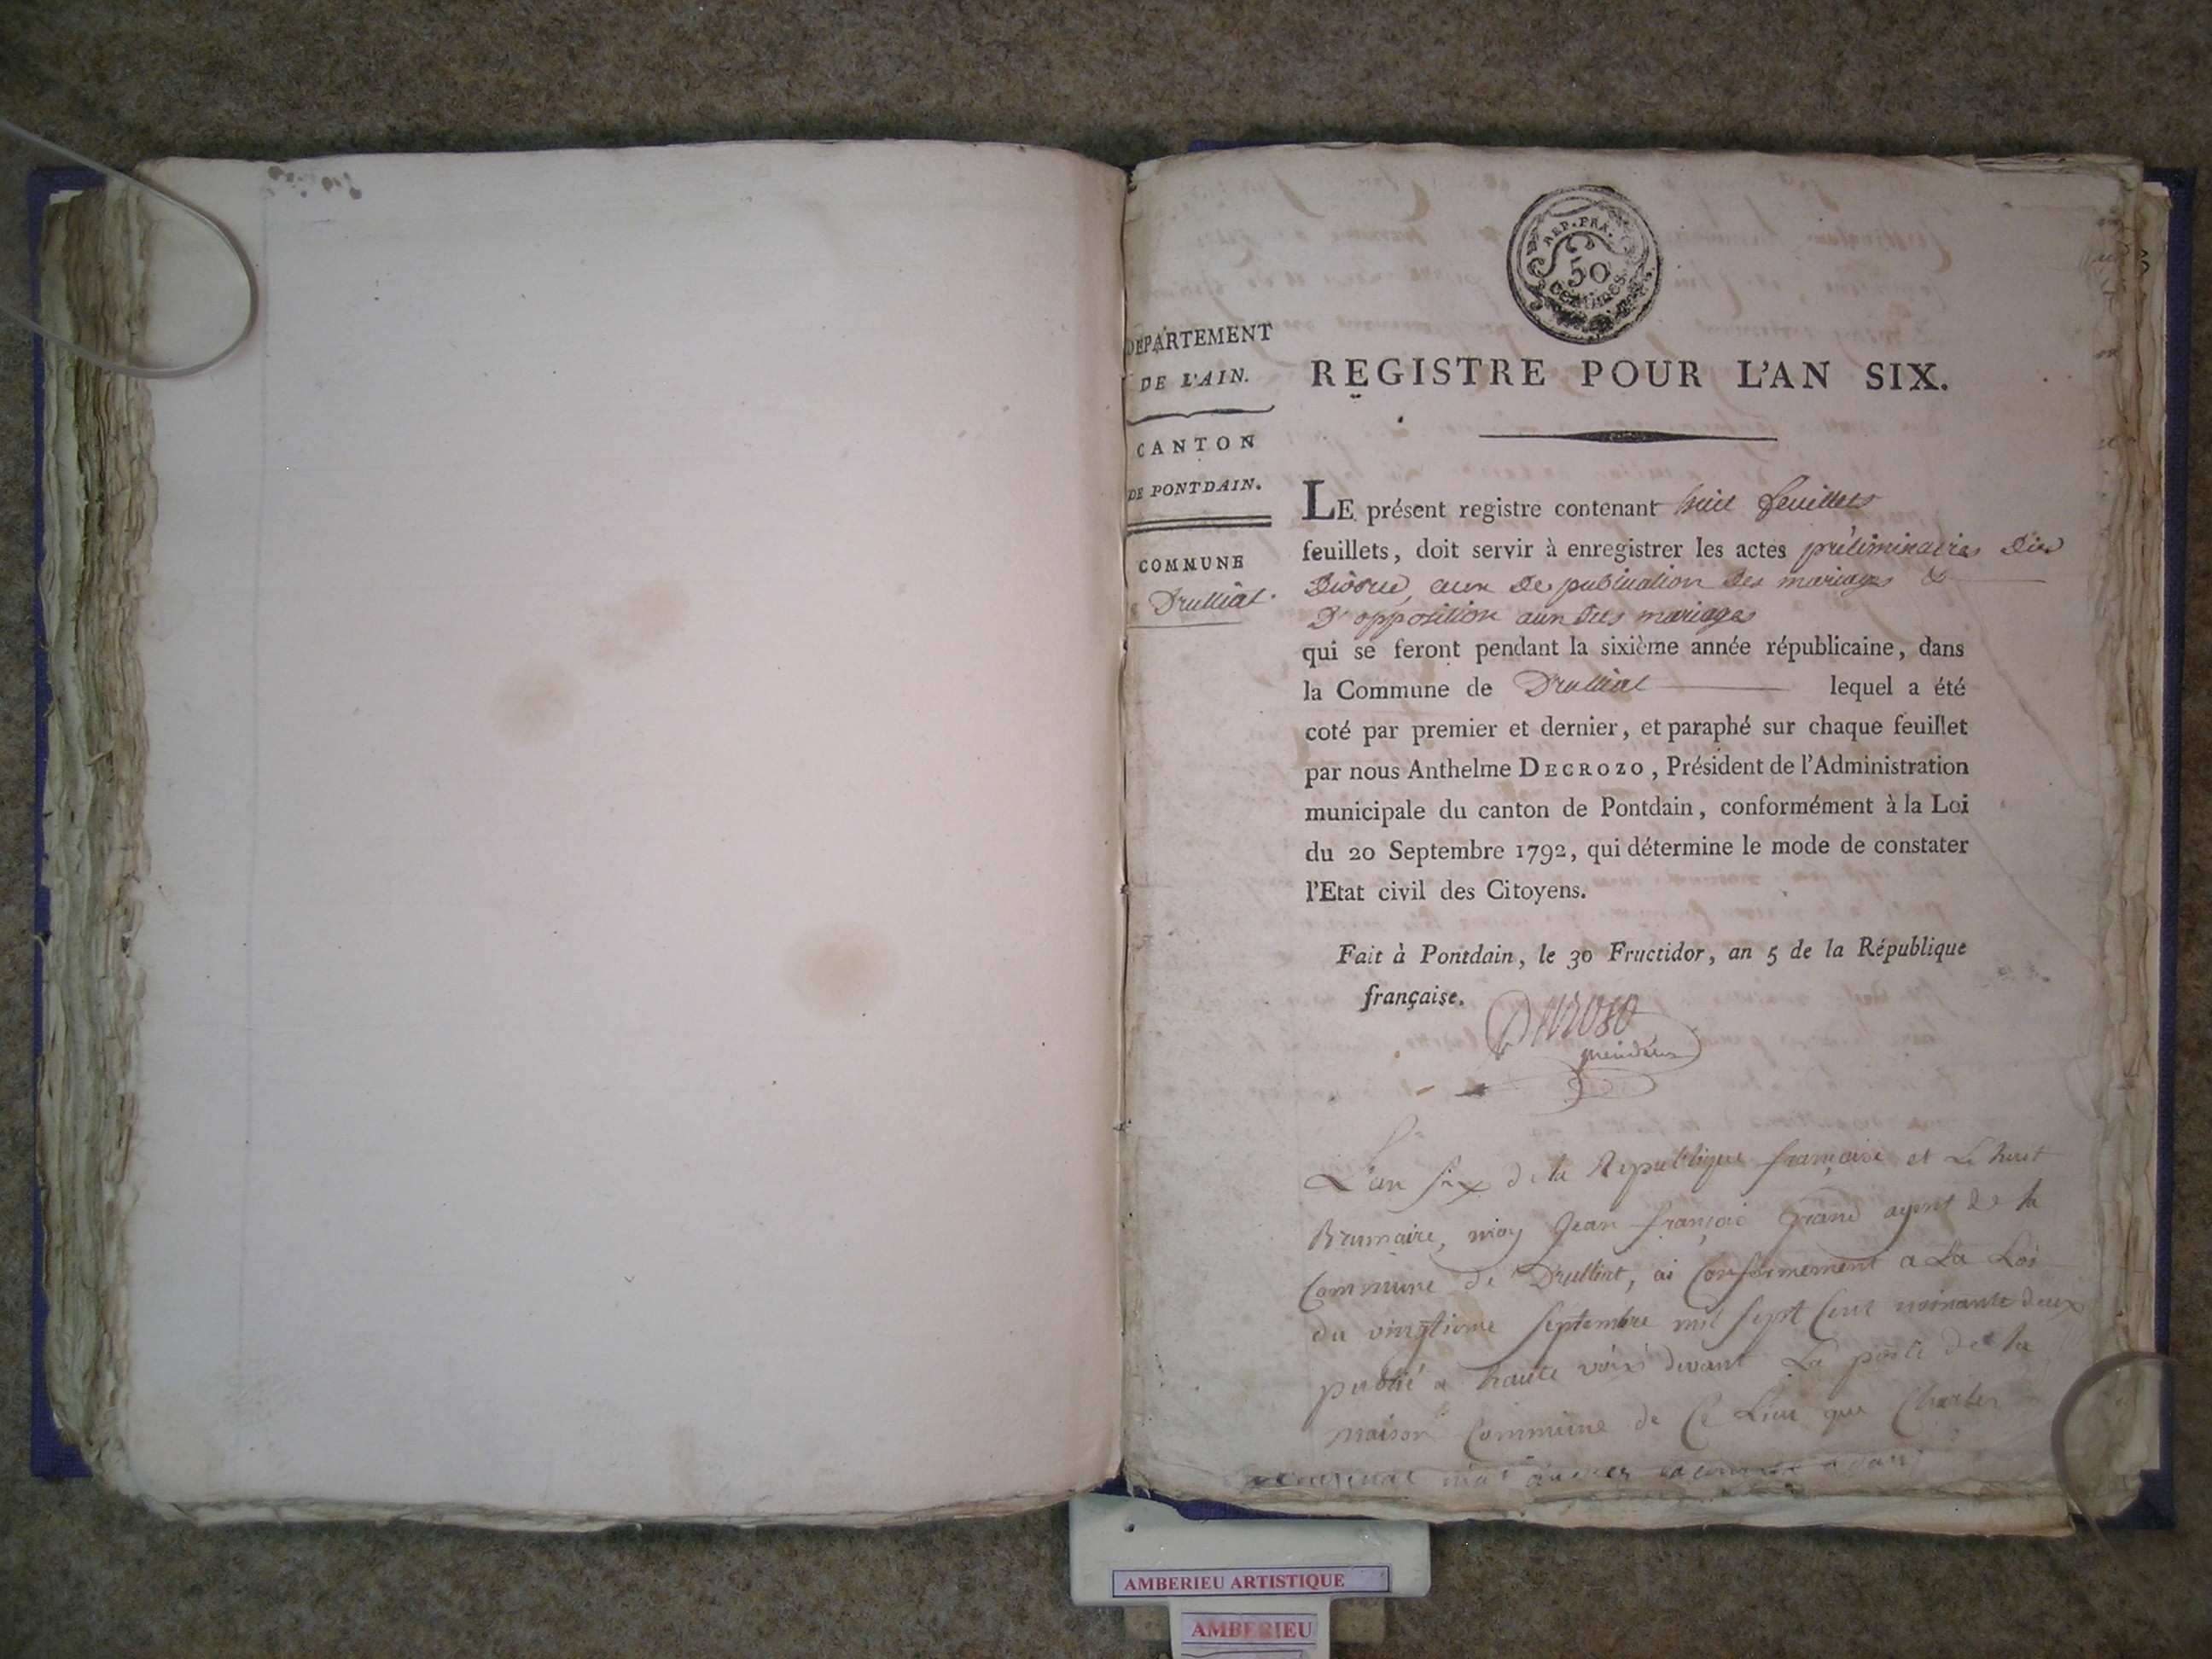 REP. FRA.
50
CENTIMES
DÉPARTEMENT
DE L'AIN.
CANTON
DE PONTDAIN.
COMMUNE
Drulliat.
REGISTRE POUR L'AN SIX.
LE présent registre contenant huit feuillets
feuillets, doit servir à enregistrer les actes préliminaires
de publication des mariages &
D'opposition mariages
qui se feront pendant la sixième année républicaine, dans
la Commune de Drulliat lequel a été
coté par premier et dernier, et paraphé sur chaque feuillet
par nous Anthelme DECROZO, Président de l'Administration
municipale du canton de Pontdain, conformément à la Loi
du 20 Septembre 1792, qui détermine le mode de constater
l'Etat civil des Citoyens.
Fait à Pontdain, le 30 Fructidor, an 5 de la République
française.
L'an six de la Republique française et Le huit
Brumaire, moy Jean françois Grand agent de la
Commune de Drulliat, ai Conformement a La Loi
du vingtieme Septembre mil sept Cent nonante deux
publié a haute voix devant La porte de la
maison Commune de Ce Lieu que Charles
AMBERIEU ARTISTIQUE
AMBERIEU